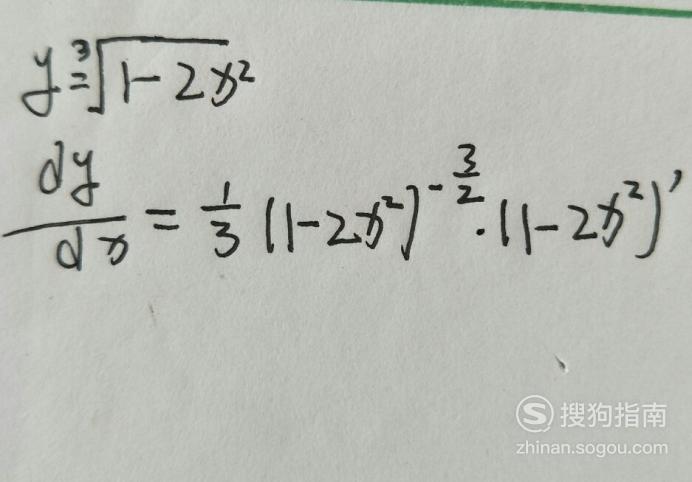 y=∛(1-2x²)
dy/dx = 1/3 (1-2x²)^(-3/2) · (1-2x²)′
S 搜狗指南
zhinan.sogou.com